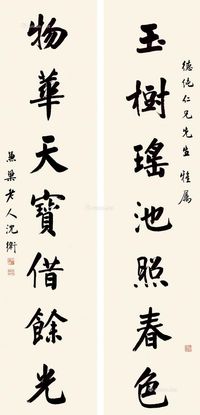 德純仁兄先生雅属
玉樹瑤池照春色
物華天寶借餘光
兼巢老人沈衛